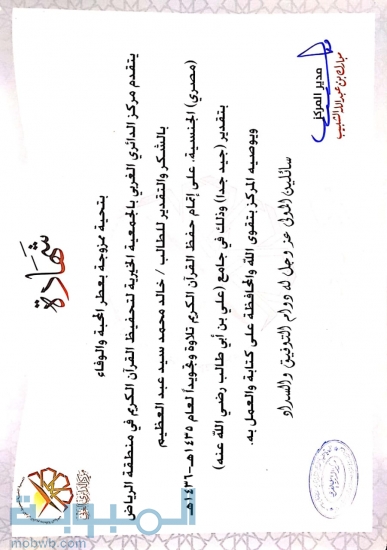 شهادة
بتحية ممزوجة بعطر المحبة والوفاء
يتقدم مركز الدائري الغربي بالجمعية الخيرية لتحفيظ القرآن الكريم في منطقة الرياض
بالشكر والتقدير للطالب / خالد محمد سيد عبد العظيم
(مصري) الجنسية، على إتمام حفظ القرآن الكريم تلاوة وتجويداً لعام ١٤٣٥هـ-١٤٣٦هـ
بتقدير (جيد جدا) وذلك في جامع (علي بن أبي طالب رضي الله عنه)
ويوصيه المركز بتقوى الله والمحافظة على كتابة والعمل به.
سائلين المولى عز وجل له دوام التوفيق والسداد
مدير المركز
مبارك بن عبدالله الشبيب
mobwb.com